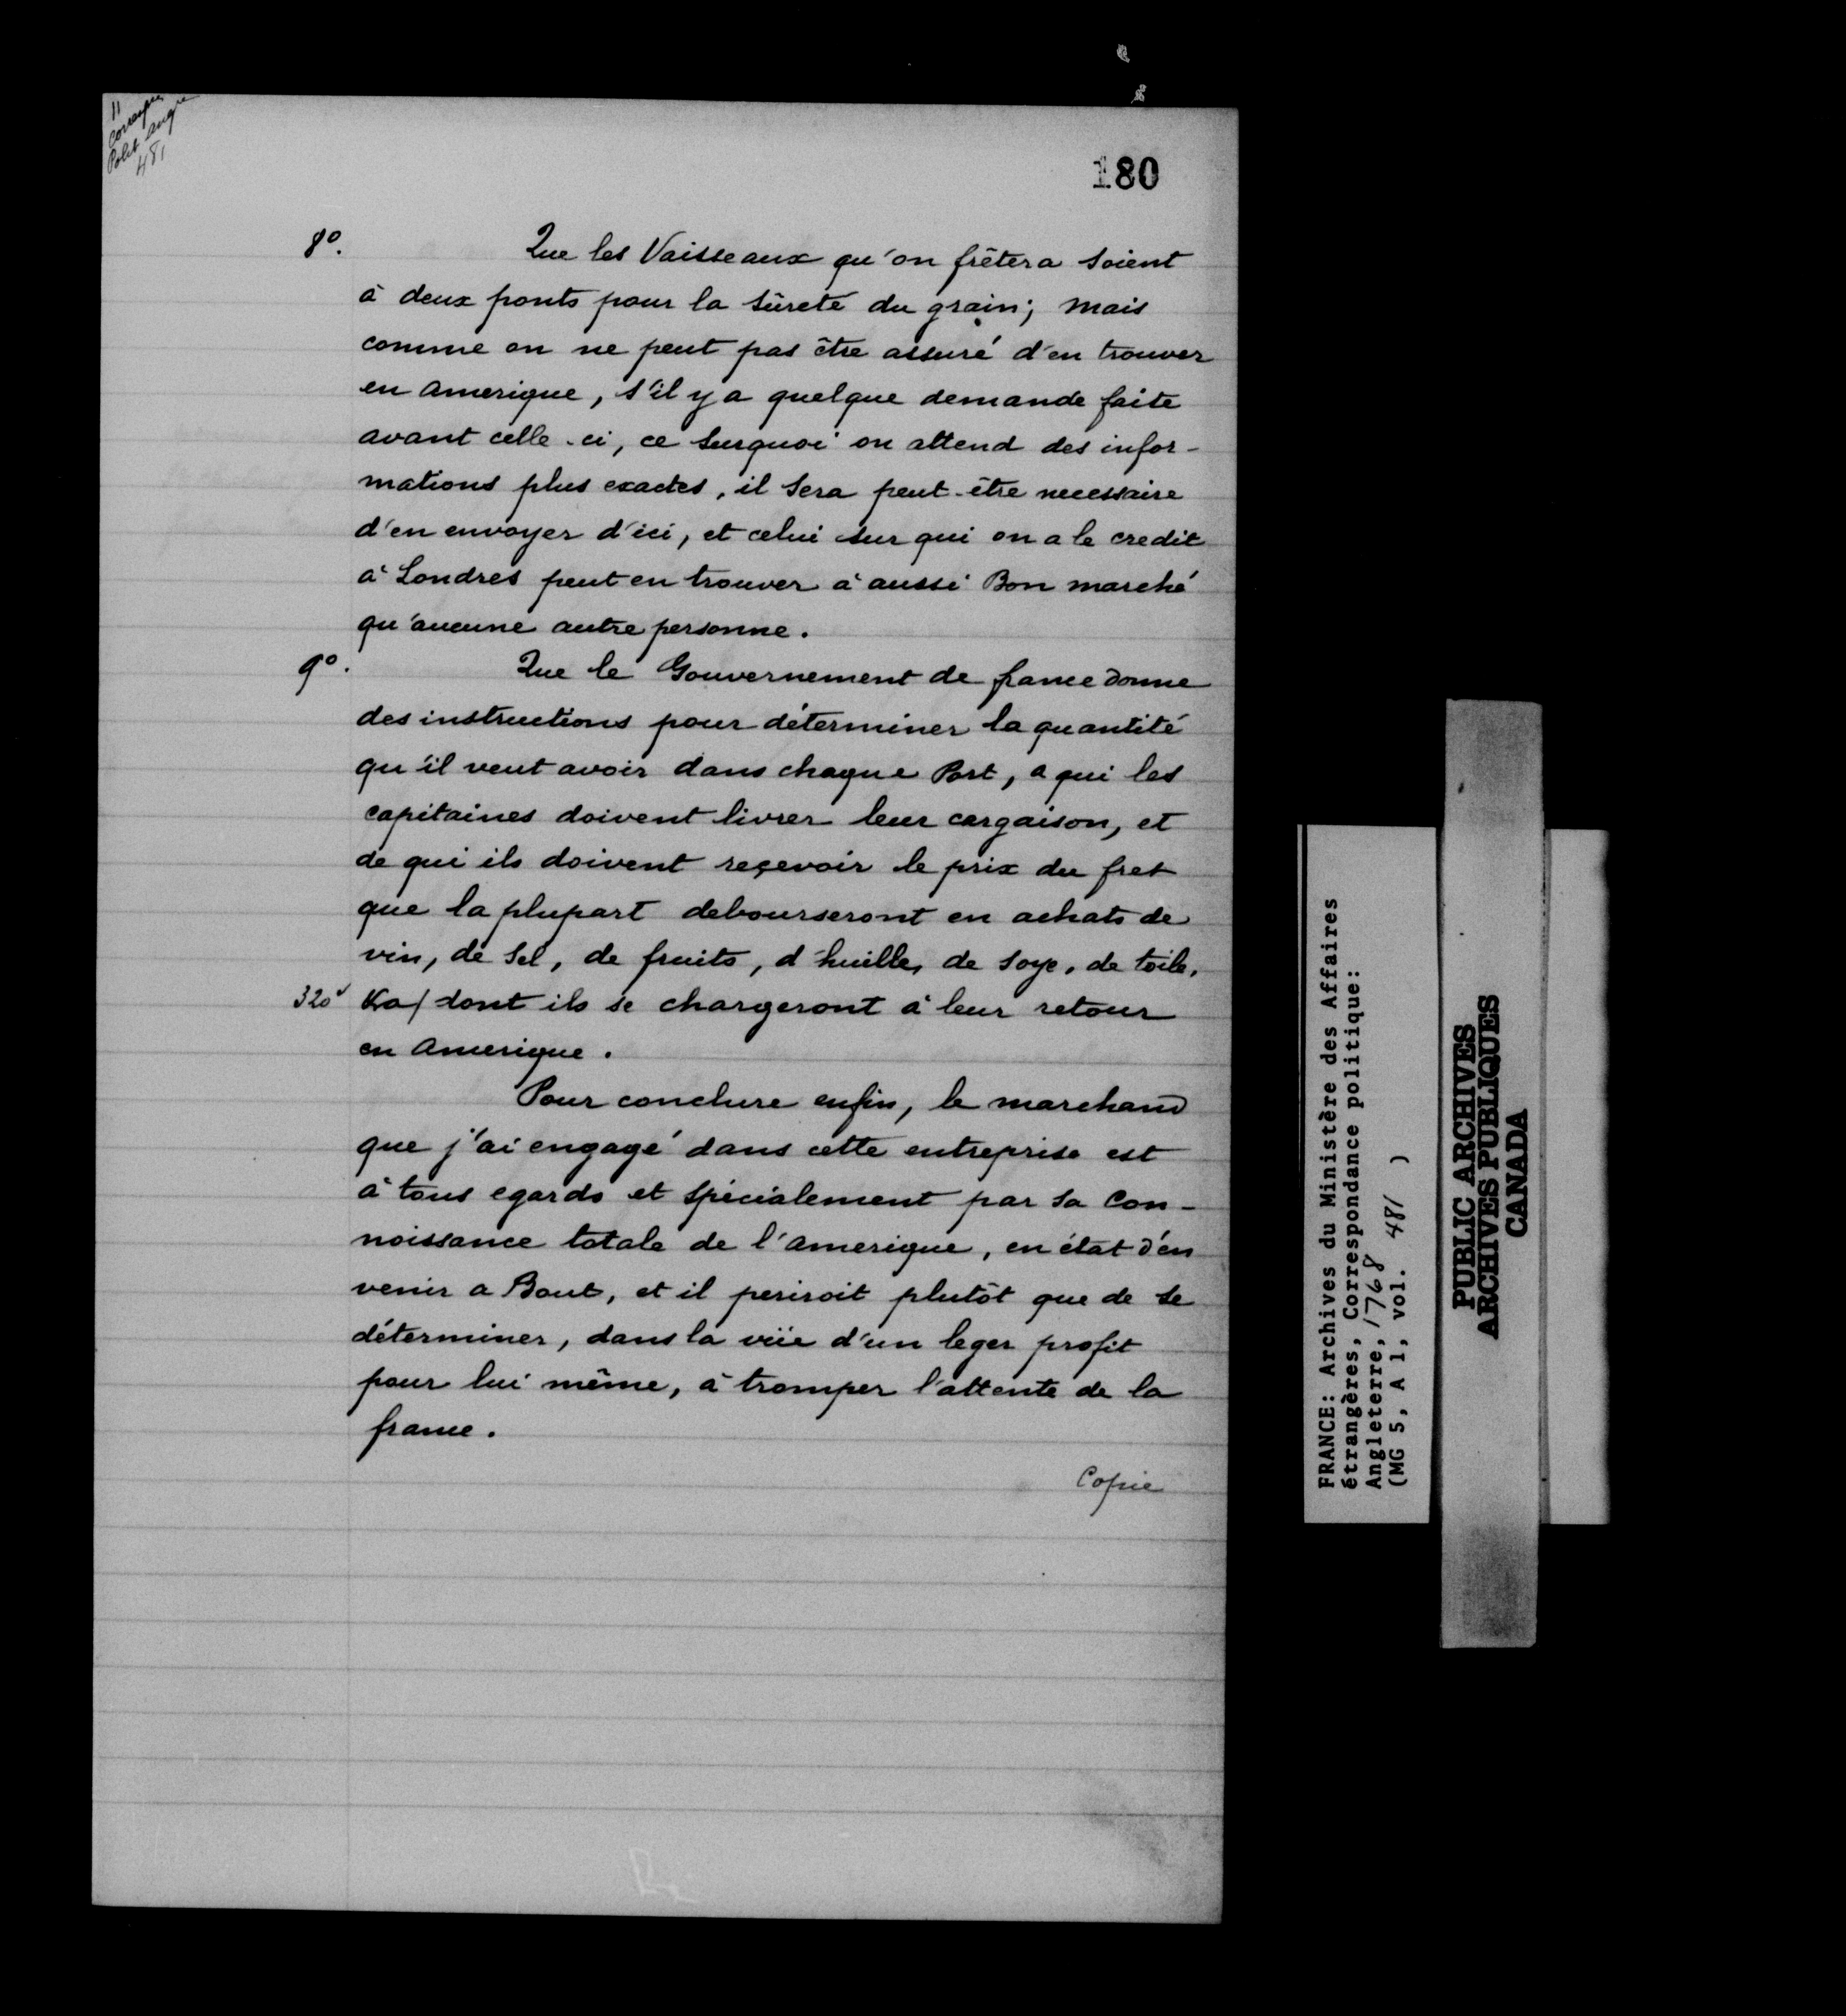 11
Corresp
Polit Angre
481
180
8º. Que les Vaisseaux qu'on frêtera soient
à deux ponts pour la sûreté du grain; mais
comme on ne peut pas être assuré d'en trouver
en amerique, s'il y a quelque demande faite
avant celle-ci, ce surquoi on attend des infor-
mations plus exactes, il sera peut-être necessaire
d'en envoyer d'ici, et celui sur qui on a le credit
à Londres peut en trouver à aussi Bon marché
qu'aucune autre personne.
9º. Que le Gouvernement de france donne
des instructions pour déterminer la quantité
qu'il veut avoir dans chaque Port, a qui les
capitaines doivent livrer leur cargaison, et
de qui ils doivent reçevoir le prix du fret
que la plupart debourseront en achats de
vin, de sel, de fruits, d'huille, de soye, de toile,
320v &a/ dont ils se chargeront à leur retour
en amerique.
Pour conclure enfin, le marchand
que j'ai engagé dans cette entreprise est
à tous egards et spécialement par sa con-
noissance totale de l'amerique, en état d'en
venir a Bout, et il periroit plutôt que de se
déterminer, dans la vüe d'un leger profit
pour lui même, à tromper l'attente de la
france.
Copie
FRANCE: Archives du Ministère des Affaires
étrangères, Correspondance politique:
Angleterre, 1768
(MG 5, A 1, vol. 481 )
PUBLIC ARCHIVES
ARCHIVES PUBLIQUES
CANADA